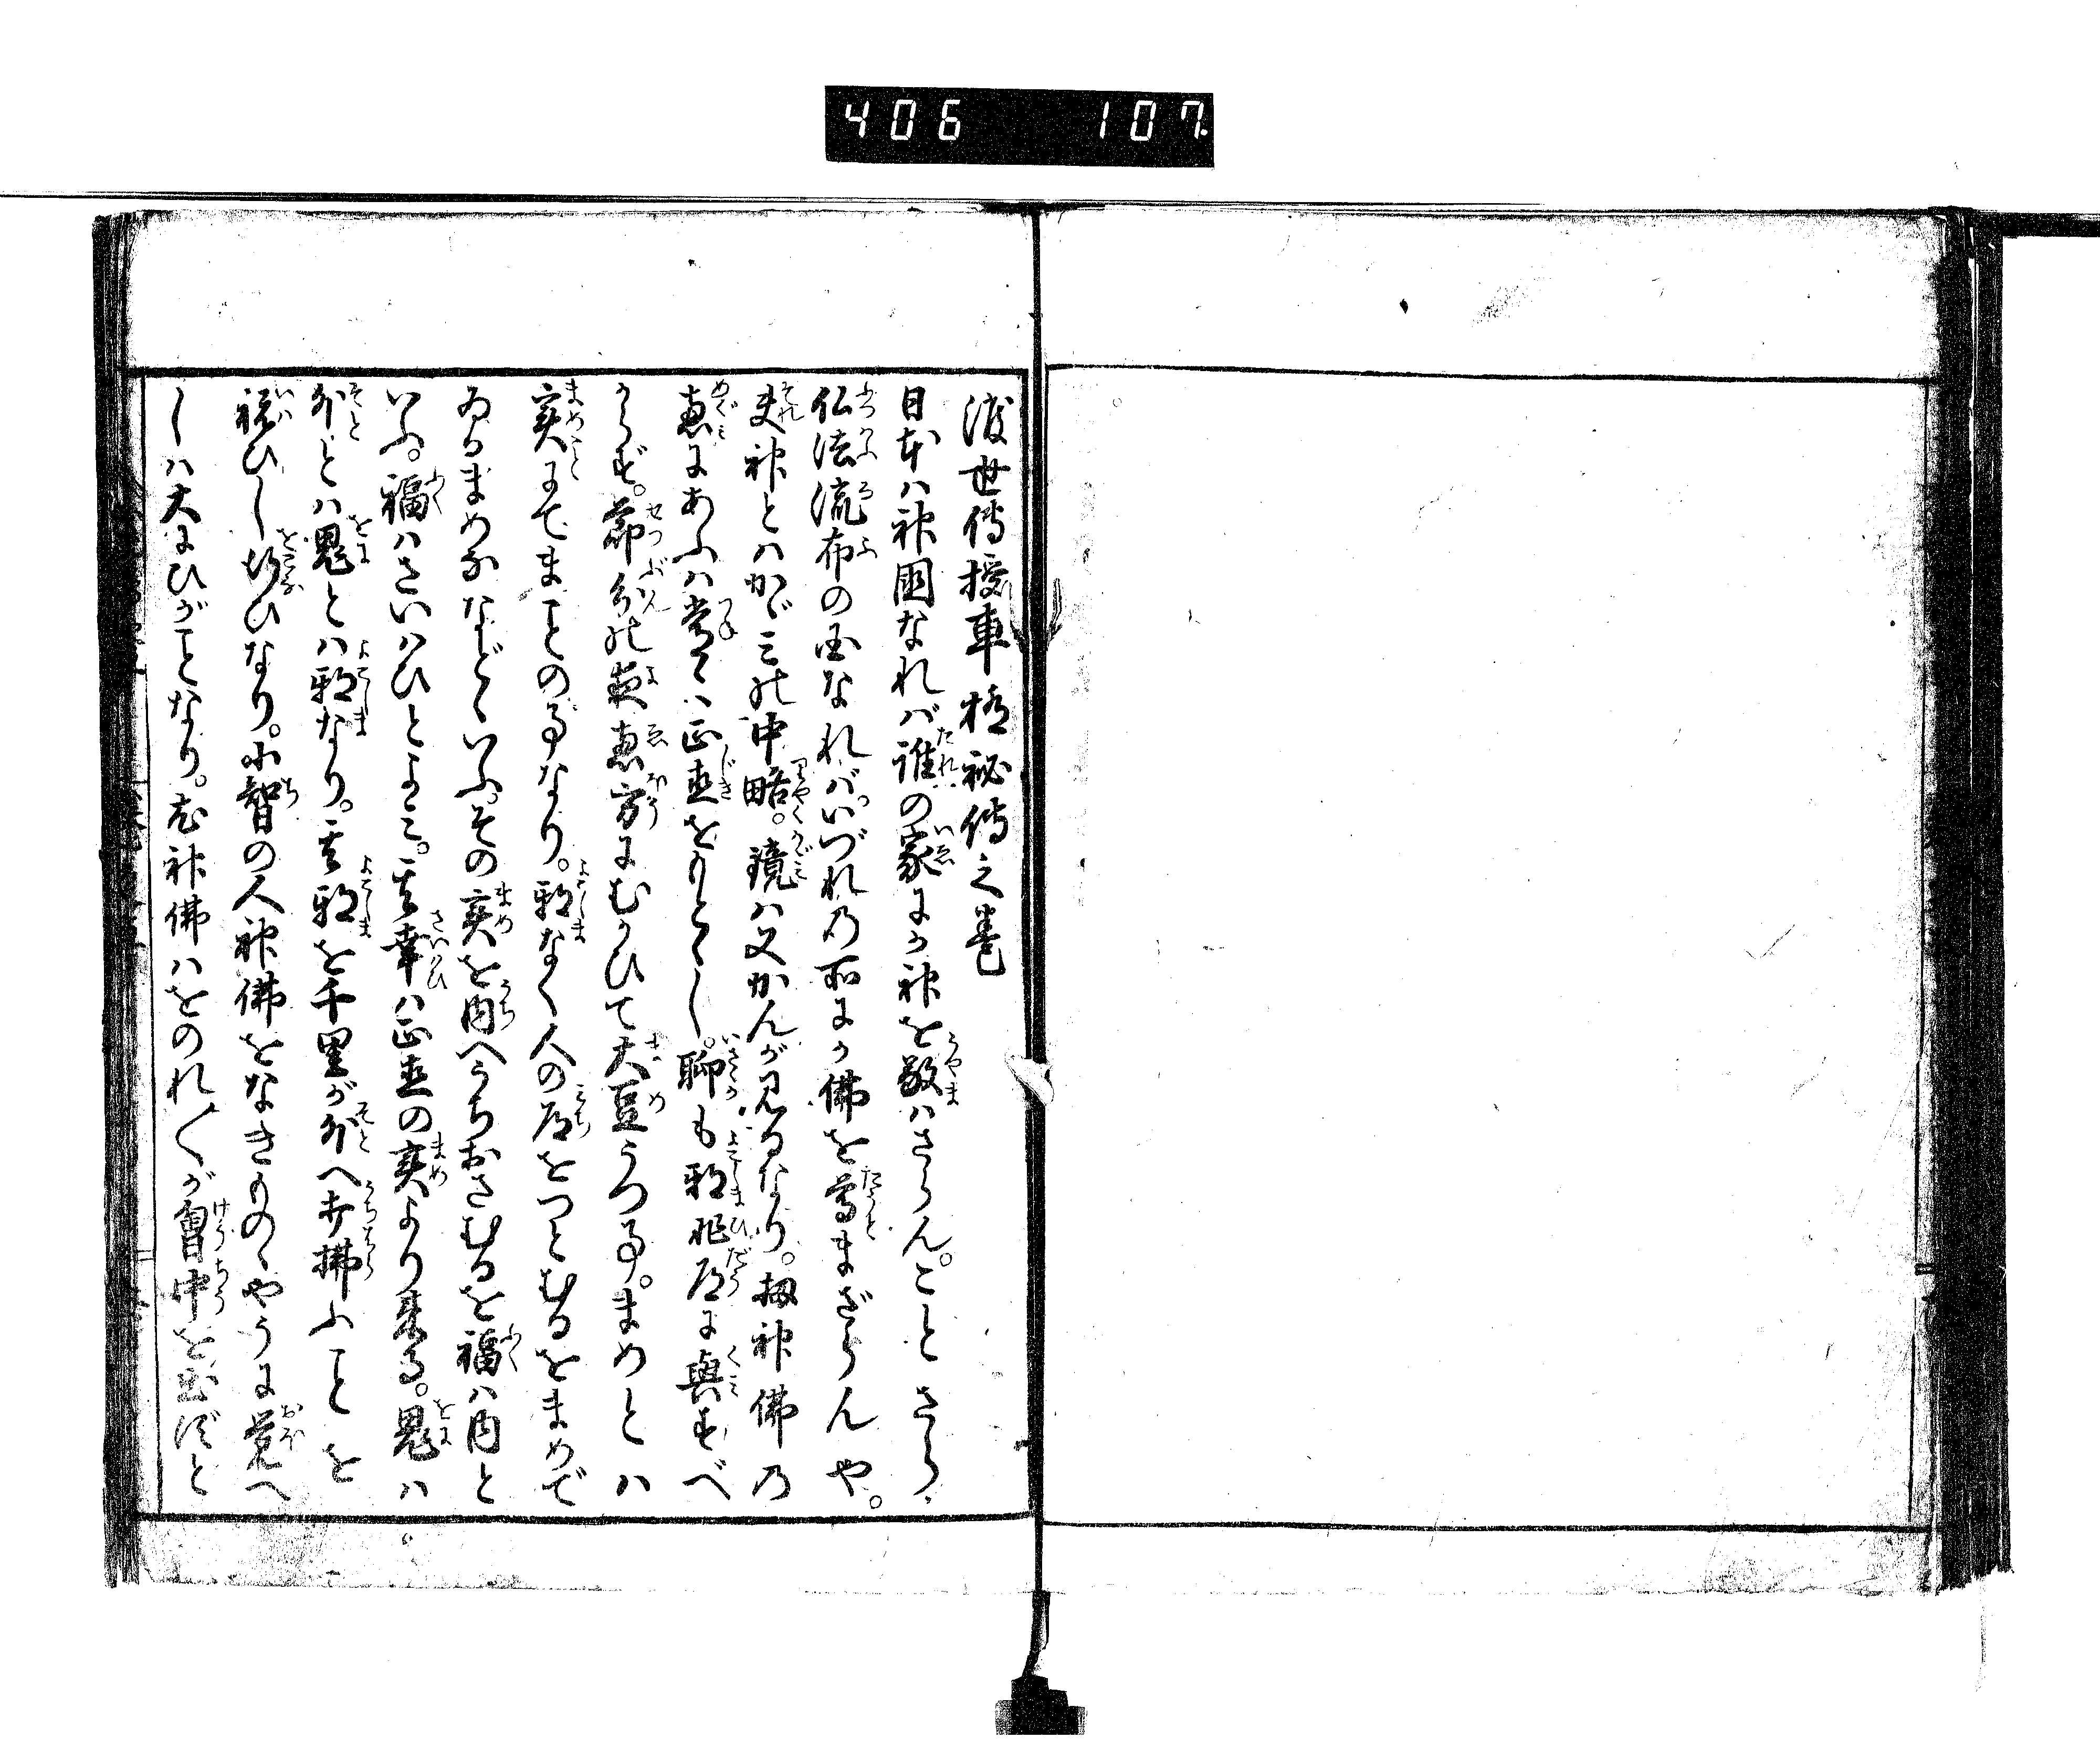 406 107
渡世傳授車 極秘傳之巻
日本ハ神國なれバ誰の家にか神を敬ハざらん。ことさら
仏法流布の国なれバ。いづれの所にか佛を尊まざらんや。
夫神とハかゞミの中略。鏡ハ又かんが見るなり。扨神佛の
恵にあふハ常々正直をもとゝし。聊も邪非道に與すべ
からず。節分の夜恵方にむかひて大豆うつ事。まめとハ
実にてまことの事なり。邪なく人の道をつとむるをまめで
ゐるまめなゝどゝいふ。その実を内へうちおさむるを福ハ内と
いふ。福ハさいハひとよミ。其幸ハ正直の実より来る。鬼ハ
外とハ鬼とハ邪なり。其邪を千里が外へ打拂ふことを
祝ひし行ひなり。小智の人神佛をなきものゝやうに覚へ
しハ大にひがことなり。尤神佛ハをのれ〳〵が胸中を出ずと